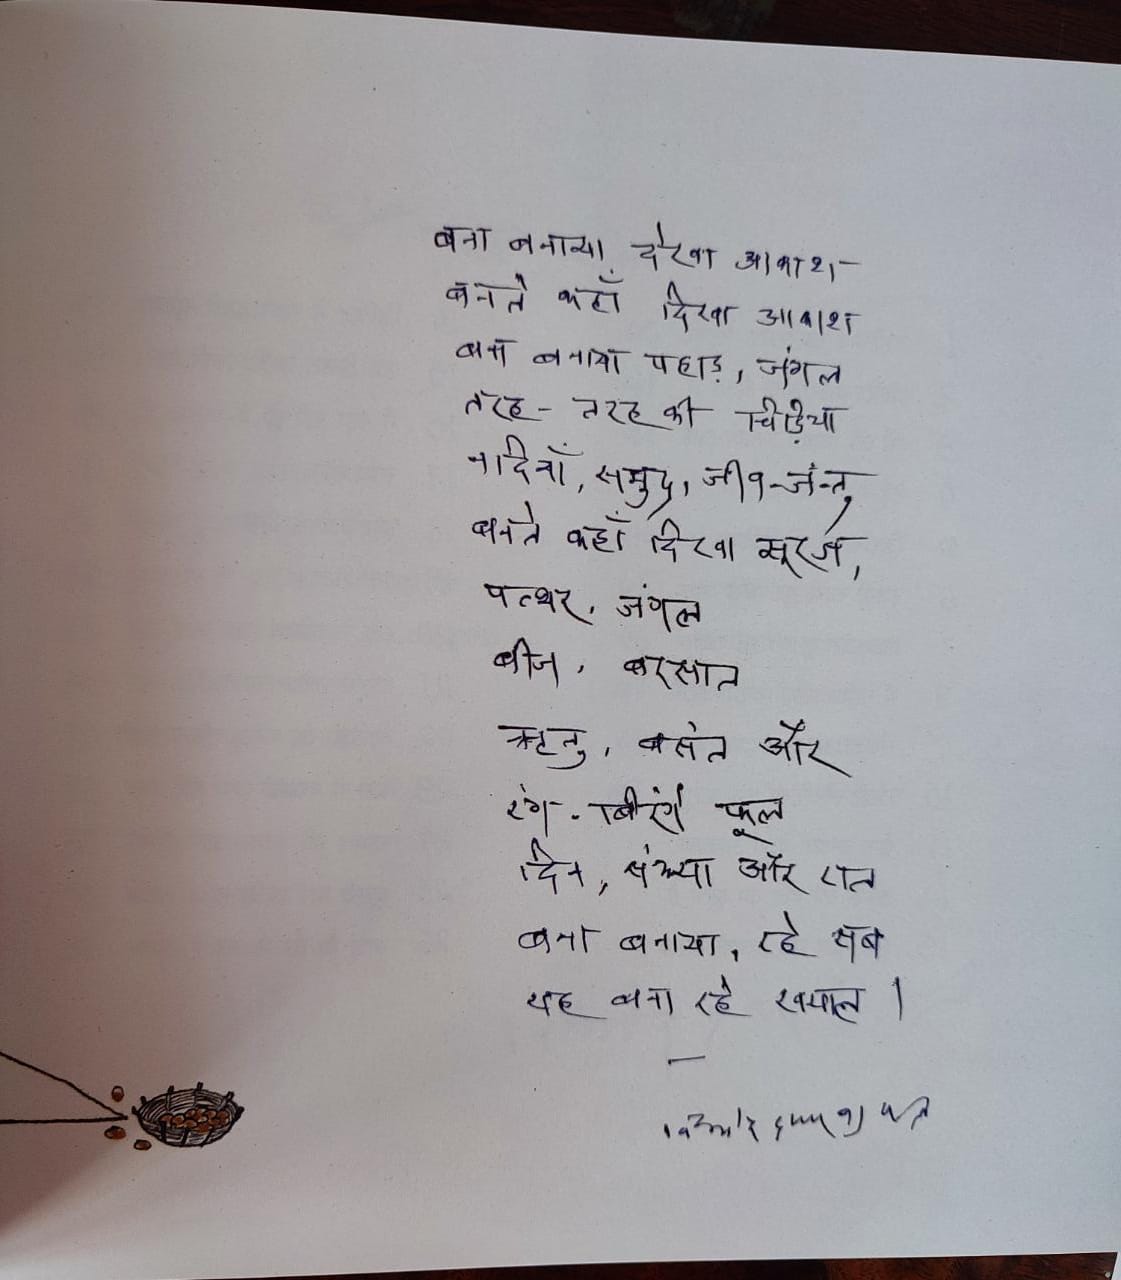 बना बनाया देखा आकाश
बनते कहाँ दिखा आकाश
बना बनाया पहाड़, जंगल
तरह-तरह की चिड़िया
नदियाँ, समुद्र, जीव-जंन्तु
बनते कहाँ दिखा सूरज,
पत्थर, जंगल
बीज, बरसात
ऋतु, बसंत और
रंग-बिरंगे फूल
दिन, संध्या और रात
बना बनाया, रहे सब
यह बना रहे खयाल।